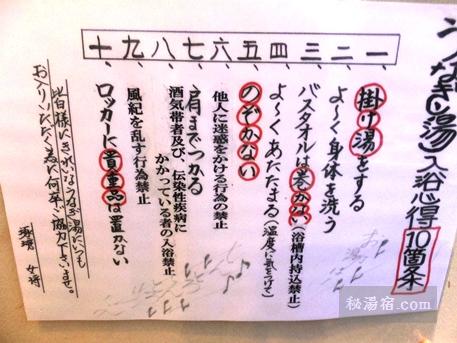 うなぎ湯 入浴心得 10箇条
一、掛け湯をする
二、よ〜く身体を洗う
三、バスタオルは巻かない(浴槽内持込禁止)
四、よ〜くあたたまる(温度に気をつけて)
五、のぞかない
六、他人に迷惑をかける行為の禁止
七、肩までつかる
八、酒気帯者及び、伝染性疾病に
かかっている者の入浴禁止
九、風紀を乱す行為禁止
十、ロッカーに貴重品は置かない
皆様にきれいなうなぎ湯にいつも
お入りいただく為に何卒ご協力下さいませ。
湯澤 女将
秘湯宿.com